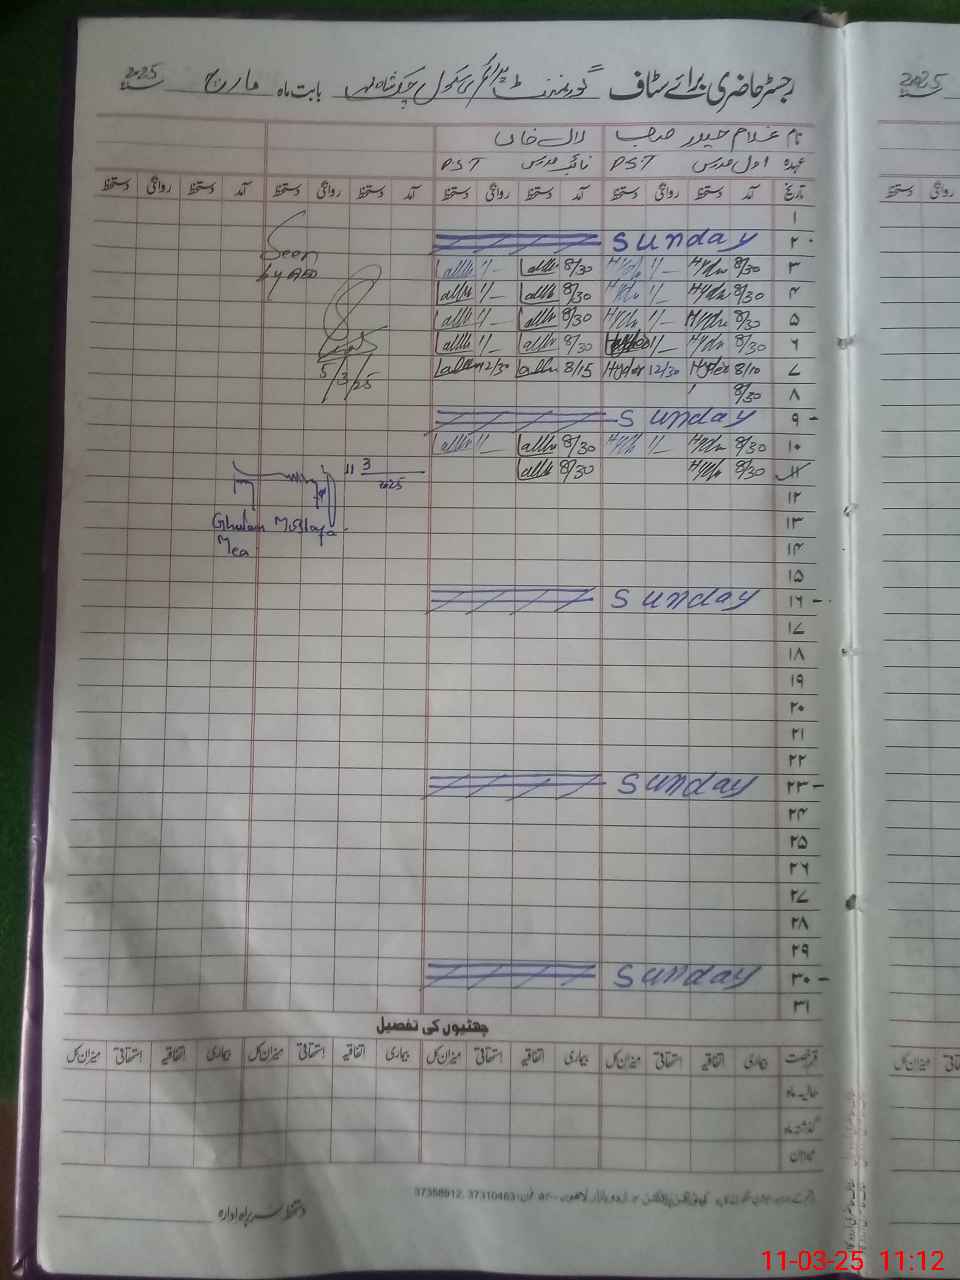 رجسٹر حاضری برائے سٹاف گورنمنٹ سکول بابت ماہ مارچ سنہ 2025
نام غلام حیدر صاحب لال خان
عہدہ اول مدرس PST نائب مدرس PST
تاریخ آمد دستخط روانگی دستخط آمد دستخط روانگی دستخط آمد دستخط روانگی دستخط آمد دستخط روانگی دستخط
۱
۲ Sunday
۳ 8/30 Hyder 1/- Hyder 8/30 Lallu 1/- Lallu
۴ 8/30 Hyder 1/- Hyder 8/30 Lallu 1/- Lallu
۵ 8/30 Hyder 1/- Hyder 8/30 Lallu 1/- Lallu
۶ 8/30 Hyder 1/- 8/30 Lallu 1/- Lallu
۷ 8/10 Hyder 12/30 Hyder 8/15 Lallu 12/30 Lallu
۸ 8/30
۹ Sunday
۱۰ 8/30 Hyder 1/- Hyder 8/30 Lallu 1/- Lallu
۱۱ 8/30 Hyder 8/30 Lallu
۱۲
۱۳
۱۴
۱۵
۱۶ Sunday
۱۷
۱۸
۱۹
۲۰
۲۱
۲۲
۲۳ Sunday
۲۴
۲۵
۲۶
۲۷
۲۸
۲۹
۳۰ Sunday
۳۱
Seen
by AEO
5/3/25
11 3
2025
Ghulam Mustafa
Mea
چھٹیوں کی تفصیل
قسم رخصت بیماری اتفاقیہ استحقاقی میزان کل بیماری اتفاقیہ استحقاقی میزان کل بیماری اتفاقیہ استحقاقی میزان کل بیماری اتفاقیہ استحقاقی میزان کل
حالیہ ماہ
گذشتہ ماہ
میزان
37358912, 37310463
دستخط سربراہ ادارہ
2025
دستخط روانگی
میزان کل
11-03-25 11:12